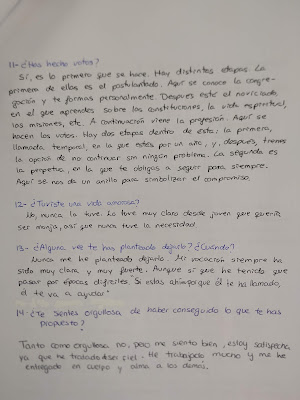 11- ¿Has hecho votos?
Sí, es lo primero que se hace. Hay distintas etapas. La
primera de ellas es el postulantado. Aquí se conoce la congre-
gación y te formas personalmente. Después está el noviciado,
en el que aprendes sobre las constituciones, la vida espiritual,
las misiones, etc. A continuación viene la profesión. Aquí se
hacen los votos. Hay dos etapas dentro de esta; la primera,
llamada temporal, en la que estás por un año, y, después, tienes
la opción de no continuar sin ningún problema. La segunda es
la perpetua, en la que te obligas a seguir para siempre.
Aquí se nos da un anillo para simbolizar el compromiso.
12- ¿Tuviste una vida amorosa?
No, nunca la tuve. Lo tuve muy claro desde joven que quería
ser monja, así que nunca tuve la necesidad.
13- ¿Alguna vez te has planteado dejarlo? ¿Cuándo?
Nunca me he planteado dejarlo. Mi vocación siempre ha
sido muy clara y muy fuerte. Aunque sí que he tenido que
pasar por épocas difíciles. Si estás ahí porque él te ha llamado,
él te va a ayudar.
14- ¿Te sientes orgullosa de haber conseguido lo que te has
propuesto?
Tanto como orgullosa no, pero me siento bien, estoy satisfecha
ya que he trabajado ser fiel. He trabajado mucho y me he
entregado en cuerpo y alma a los demás.